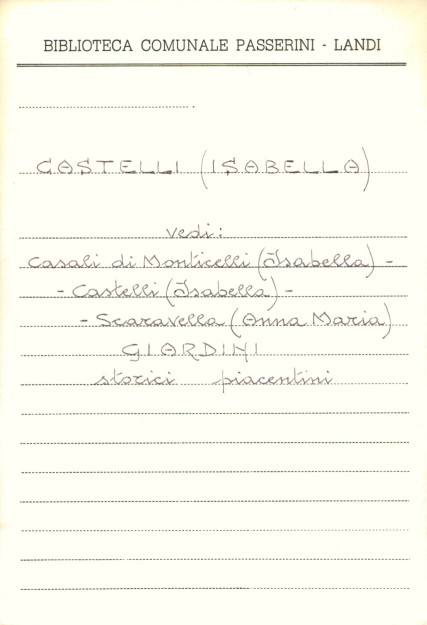 BIBLIOTECA COMUNALE PASSERINI - LANDI
CASTELLI (ISABELLA)
vedi:
Casali di Monticelli (Isabella) -
- Castelli (Isabella) -
- Scaravella (Anna Maria)
GIARDINI
storici piacentini